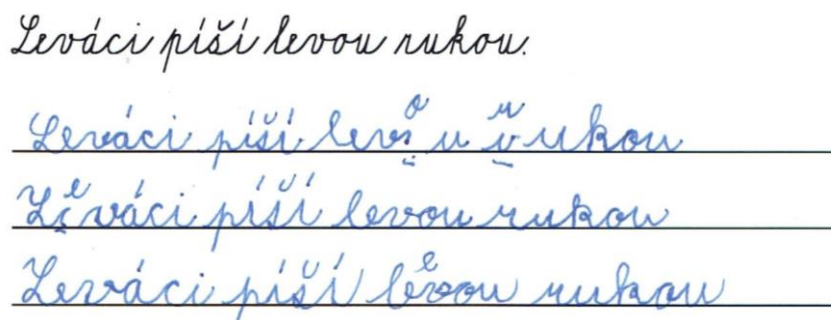 Leváci píší levou rukou.
Leváci píší levou rukou
Leváci píší levou rukou
Leváci píší levou rukou